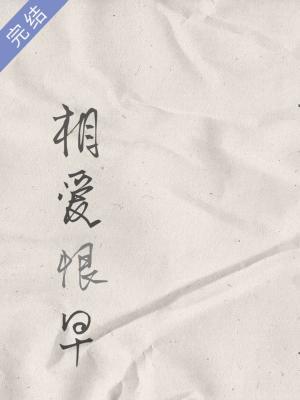 完结
相爱恨早